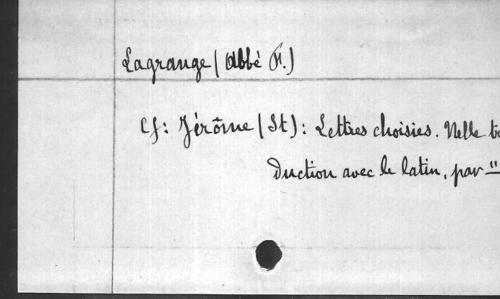 Lagrange (Abbé F.)
Cf: Jérôme (St): Lettres choisies. Nelle tra
duction avec le latin, par "